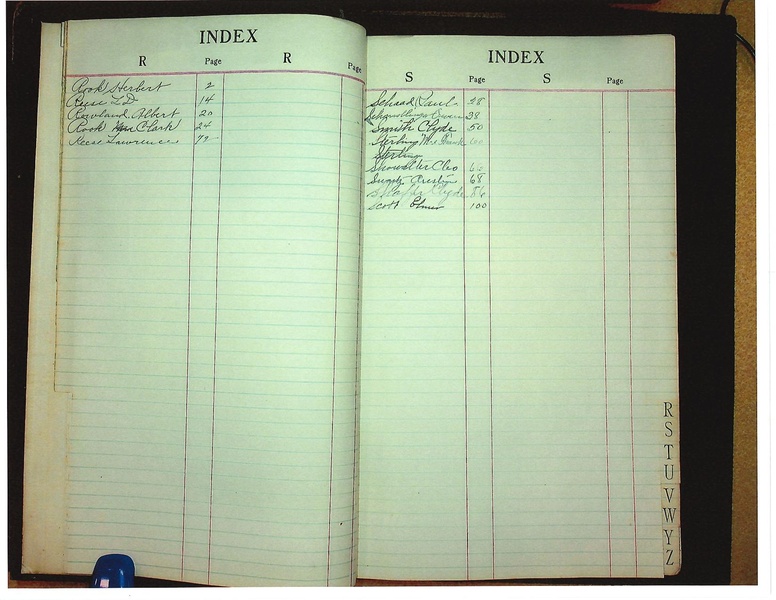 INDEX
R Page R Page
Rook Herbert 2
Reese L D 14
Rowland Albert 20
Rook Mrs Clark 24
Reese Lawrence 72
INDEX
S Page S Page
Schaad Paul 28
38
Smith Clyde 50
Sterling Mrs Frank 60
Sterling
Showalter Cleo
68
Clyde 86
Scott Elmer 100
R
S
T
U
V
W
Y
Z